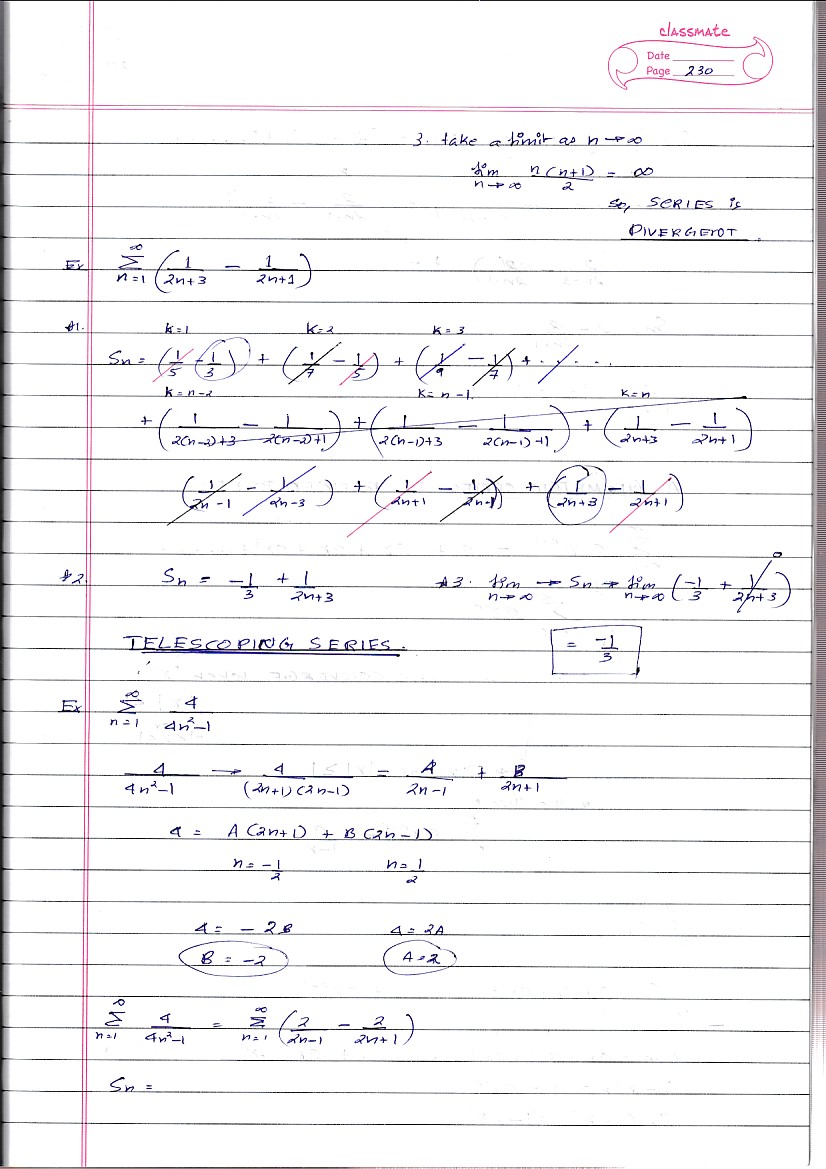 classmate
Date
Page 230
3. take a limit as n → ∞
lim n→∞ n(n+1)/2 = ∞
so, SERIES is
DIVERGENT.
Ex ∞ Σ n=1 (1/2n+3 − 1/2n+1)
#1. k=1 k=2 k=3
Sn = (1/5 − 1/3) + (1/7 − 1/5) + (1/9 − 1/7) + . . . . .
k=n-2 k=n-1 k=n
+ (1/2(n-2)+3 − 1/2(n-2)+1) + (1/2(n-1)+3 − 1/2(n-1)+1) + (1/2n+3 − 1/2n+1)
(1/2n-1 − 1/2n-3) + (1/2n+1 − 1/2n-1) + (1/2n+3 − 1/2n+1)
#2. Sn = -1/3 + 1/2n+3 #3. lim n→∞ → Sn → lim n→∞ (-1/3 + 1/2n+3) 0
TELESCOPING SERIES. = -1/3
Ex ∞ Σ n=1 4/4n²-1
4/4n²-1 → 4/(2n+1)(2n-1) = A/2n-1 + B/2n+1
4 = A(2n+1) + B(2n-1)
n = -1/2 n = 1/2
4 = -2B 4 = 2A
B = -2 A = 2
∞ Σ n=1 4/4n²-1 = ∞ Σ n=1 (2/2n-1 − 2/2n+1)
Sn =